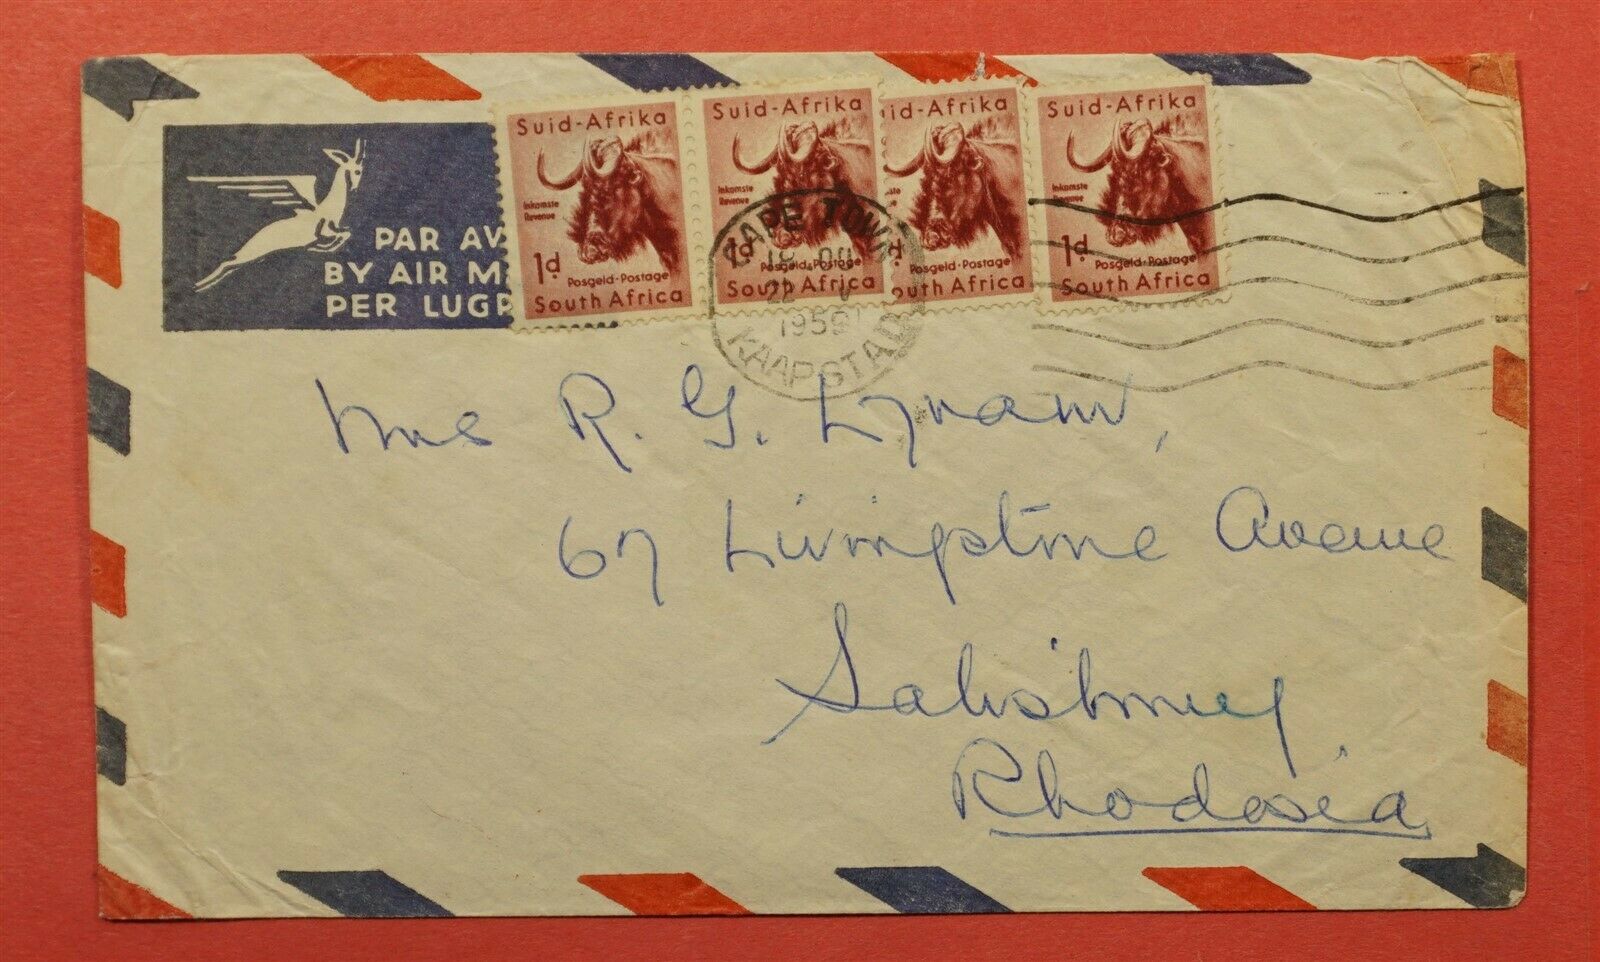 PAR AV
BY AIR M
PER LUGP
Suid-Afrika
Inkomste
Revenue
1d
Posgeld-Postage
South Africa
Suid-Afrika
Inkomste
Revenue
1d
Posgeld-Postage
South Africa
id-Afrika
mste
nue
d
Posgeld-Postage
outh Africa
Suid-Afrika
Inkomste
Revenue
1d
Posgeld-Postage
South Africa
CAPE TOWN
18 00
22
1959
KAAPSTAD
Mrs R. G. Lynam,
67 Livingstone Avenue
Salisbury
Rhodesia